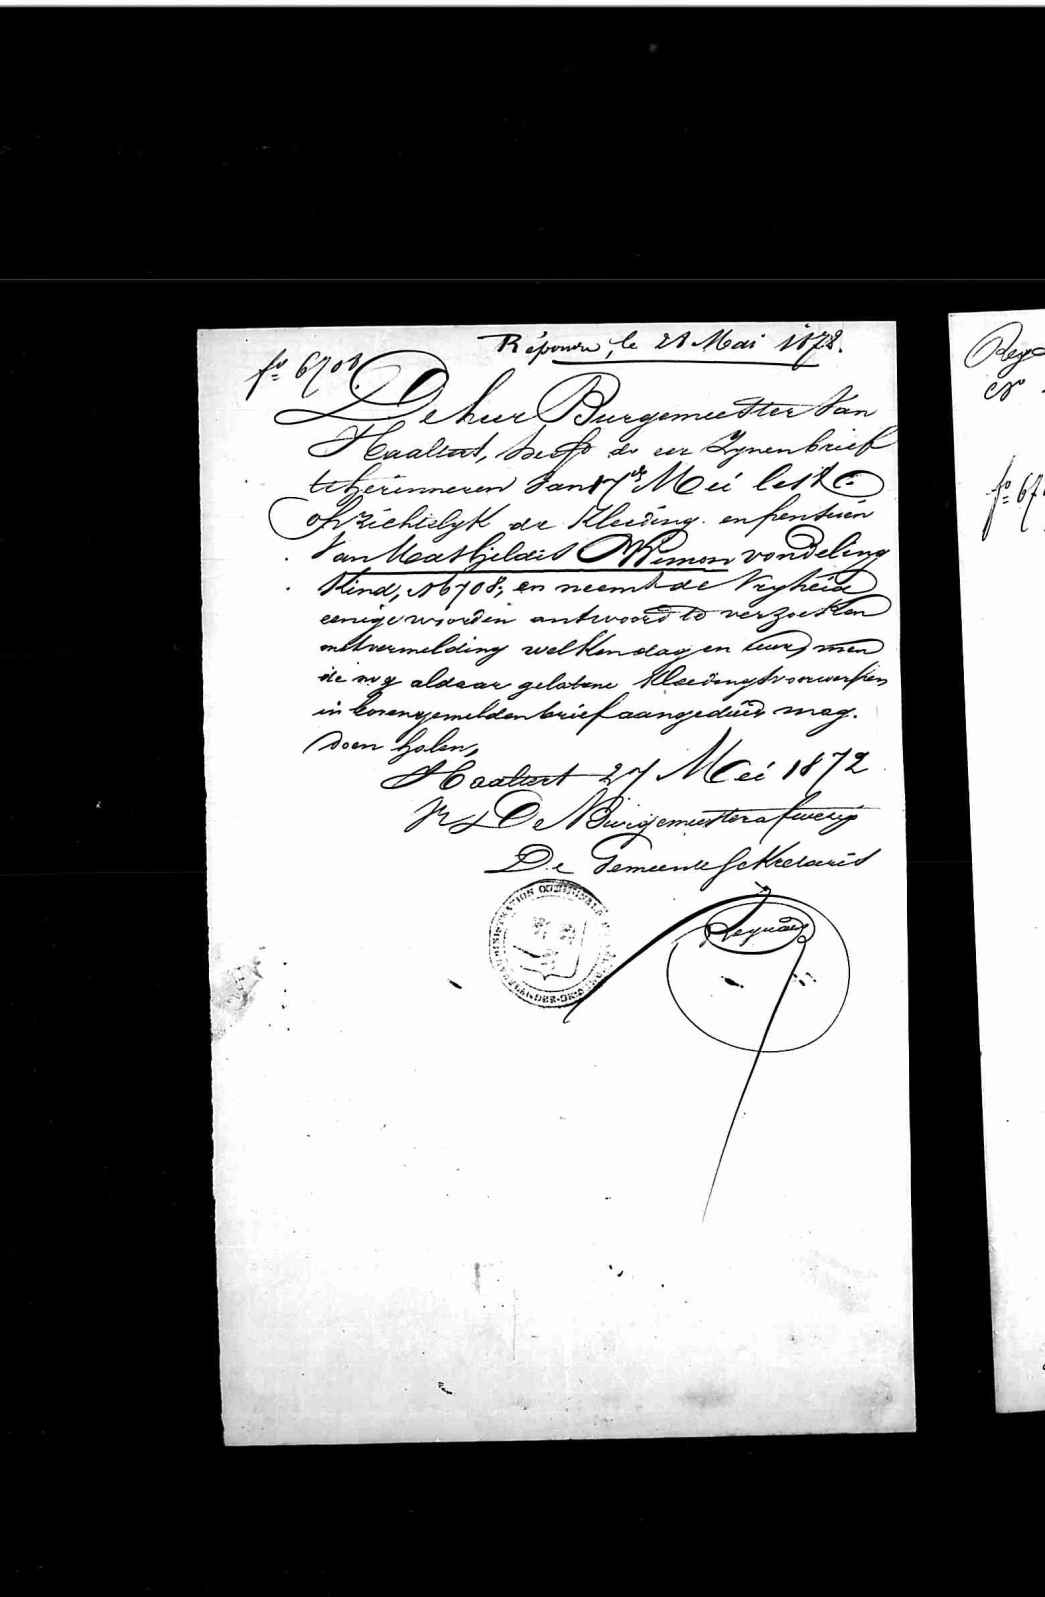 Réponse, le 28 Mai 1872.
fo 6708
De heer Burgemeester Van
Haaltert, heeft de eer Zynen brief
te herinneren Van 17er Mei lest
opzichtelyk de Kleeding en pensioen
Van Mathildis Simon vondeling
Kind, No 6708, en neemt de Vryheid
eenige woorden antwoord te verzoeken
met vermelding welken dag en uur men
de nog aldaar gelatene Kleedingsvoorwerpen
in bovengemelden brief aangeduid mag
doen halen,
Haaltert 27 Mei 1872
De Burgemeester afwezig
De Gemeente Sekretaris
ADMINISTRATION COMMUNALE